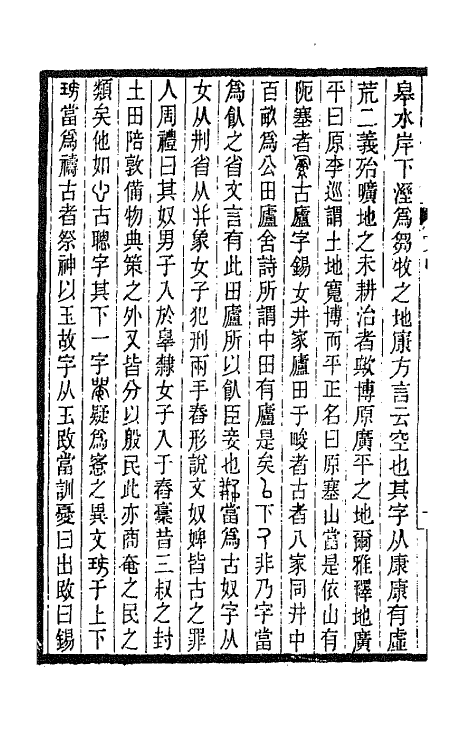 皋水岸下溼爲芻牧之地康方言云空也其字从康康有虛
荒二義殆曠地之未耕治者歟博原廣平之地爾雅釋地廣
平曰原李巡謂土地寬博而平正名曰原塞山當是依山有
阨塞者古廬字錫女井家廬田于㽙者古者八家同井中
百畝爲公田廬舍詩所謂中田有廬是矣下非乃字當
爲㐲之省文言有此田廬所以㐲臣妾也當爲古奴字从
女从刑省从廾象女子犯刑兩手舂形說文奴婢皆古之罪
人周禮曰其奴男子入於皋隸女子入于舂槀昔三叔之封
土田陪敦備物典策之外又皆分以殷民此亦商奄之民之
類矣他如古聰字其下一字疑爲窸之異文于上下
當爲禱古者祭神以玉故字从玉敃當訓憂曰出敃曰錫